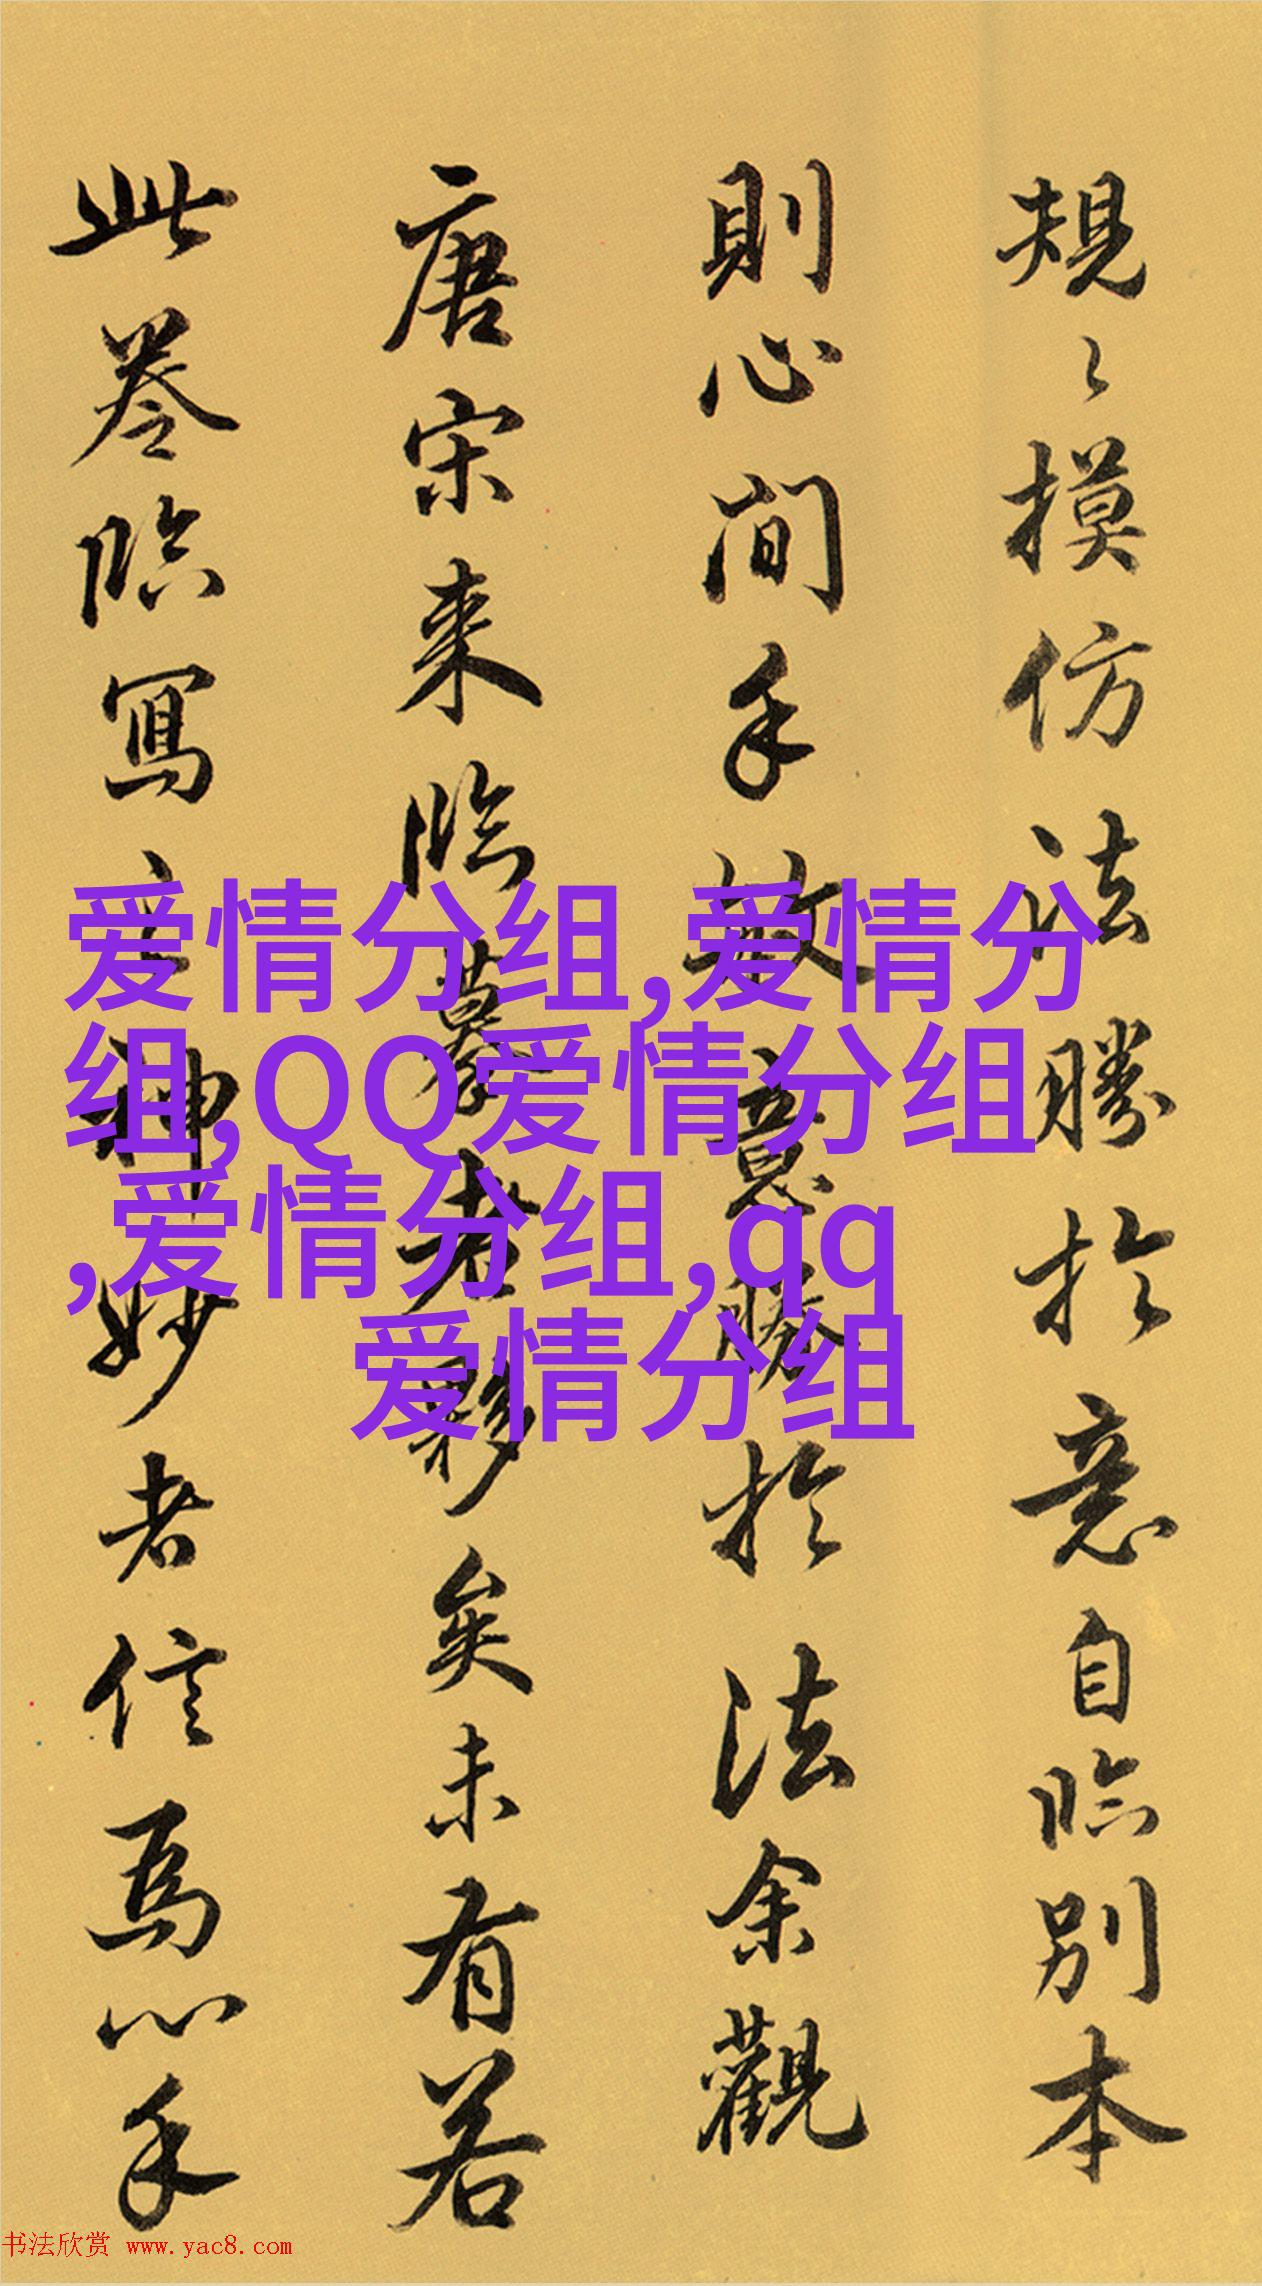 規〻摸仿法勝於意自臨别本
則心間手敏意勝於法余觀
唐宋来臨摹者夥矣未有若
此卷臨寫之神妙者信為心手
爱情分组,爱情分
组,QQ爱情分组
,爱情分组,qq
爱情分组
书法欣赏 www.yac8.com